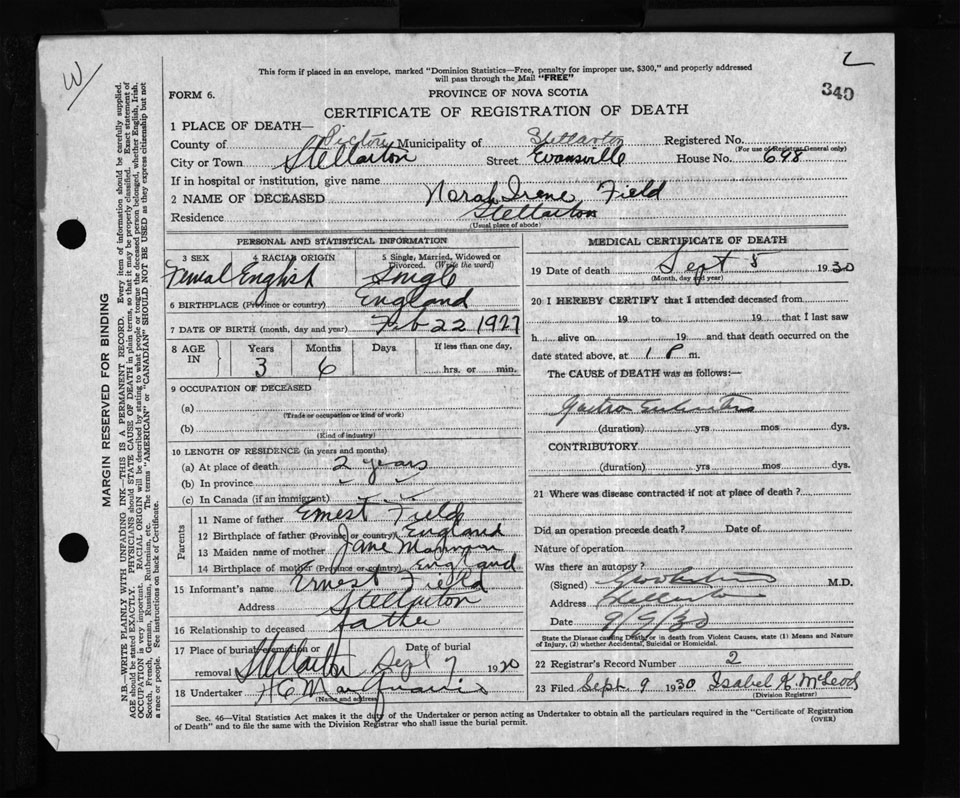 W
L
This form if placed in an envelope, marked "Dominion Statistics—Free, penalty for improper use, $300," and properly addressed
will pass through the Mail "FREE"
FORM 6.
PROVINCE OF NOVA SCOTIA
340
CERTIFICATE OF REGISTRATION OF DEATH
1 PLACE OF DEATH—
County of Pictou Municipality of Stellarton Registered No.
(For use of Registrar General only)
City or Town Stellarton Street Evansville House No. 698
If in hospital or institution, give name
2 NAME OF DECEASED Norah Irene Field
Residence Stellarton
(Usual place of abode)
PERSONAL AND STATISTICAL INFORMATION
3 SEX 4 RACIAL ORIGIN 5 Single, Married, Widowed or Divorced. (Write the word)
English Single
6 BIRTHPLACE (Province or country) England
7 DATE OF BIRTH (month, day and year) Feb 22 1927
8 AGE IN Years Months Days If less than one day,
3 6 hrs. or min.
9 OCCUPATION OF DECEASED
(a)
(Trade or occupation or kind of work)
(b)
(Kind of industry)
10 LENGTH OF RESIDENCE (in years and months)
(a) At place of death 2 years
(b) In province " "
(c) In Canada (if an immigrant) " "
Parents
11 Name of father Ernest Field
12 Birthplace of father (Province or country) England
13 Maiden name of mother Jane
14 Birthplace of mother (Province or country) England
15 Informant's name Ernest Field
Address Stellarton
16 Relationship to deceased father
17 Place of burial cremation or removal Stellarton Date of burial Sept 7 1930
18 Undertaker
(Name and address)
MEDICAL CERTIFICATE OF DEATH
19 Date of death Sept 5 1930
(Month, day and year)
20 I HEREBY CERTIFY that I attended deceased from
19 to 19 that I last saw
h alive on 19 and that death occurred on the
date stated above, at 1 P m.
The CAUSE of DEATH was as follows:—
Gastro Enteritis
(duration) yrs mos dys.
CONTRIBUTORY
(duration) yrs mos dys.
21 Where was disease contracted if not at place of death?
Did an operation precede death? Date of
Nature of operation
Was there an autopsy?
(Signed) M.D.
Address Stellarton
Date 9/9/30
State the Disease causing Death, or in death from Violent Causes, state (1) Means and Nature
of Injury, (2) whether Accidental, Suicidal or Homicidal.
22 Registrar's Record Number 2
23 Filed Sept. 9 1930 Isabel K McLeod
(Division Registrar)
Sec. 46—Vital Statistics Act makes it the duty of the Undertaker or person acting as Undertaker to obtain all the particulars required in the "Certificate of Registration
of Death" and to file the same with the Division Registrar who shall issue the burial permit.
(OVER)
MARGIN RESERVED FOR BINDING
N.B.—WRITE PLAINLY WITH UNFADING INK—THIS IS A PERMANENT RECORD. Every item of information should be carefully supplied.
AGE should be stated EXACTLY. PHYSICIANS should STATE CAUSE OF DEATH in plain terms, so that it may be properly classified. Exact statement of
OCCUPATION is very important. RACIAL ORIGIN will be described by stating to what people or tongue the deceased person belonged, whether English, Irish,
Scotch, French, German, Russian, Ruthenian, etc. The terms "AMERICAN" or "CANADIAN" SHOULD NOT BE USED as they express citizenship but not
a race or people. See instructions on back of Certificate.